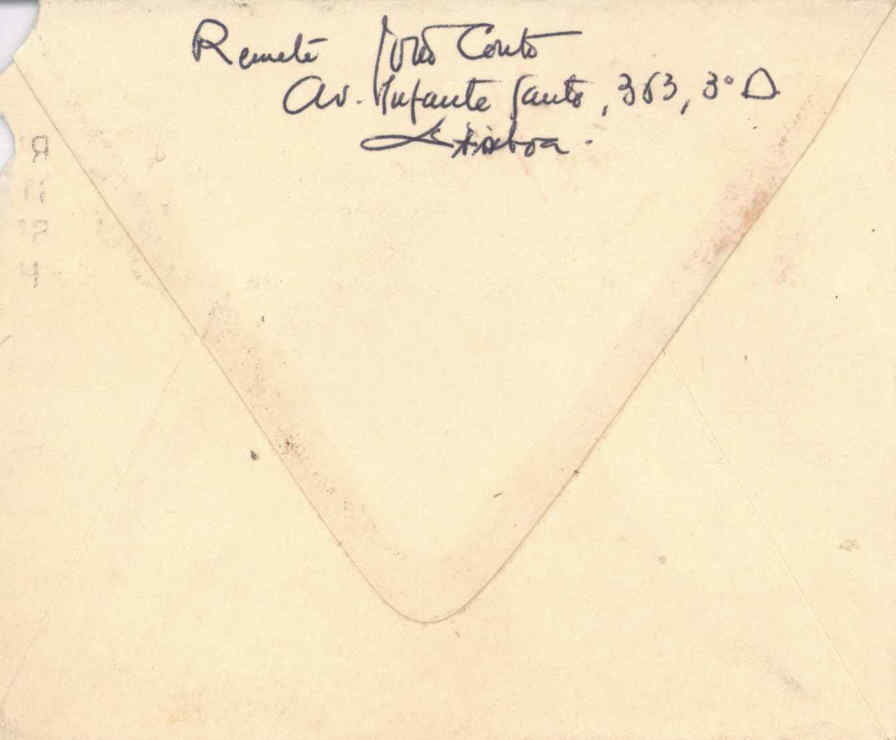 Remete João Couto
Av. Infante Santo, 363, 3º D.
Lisboa.